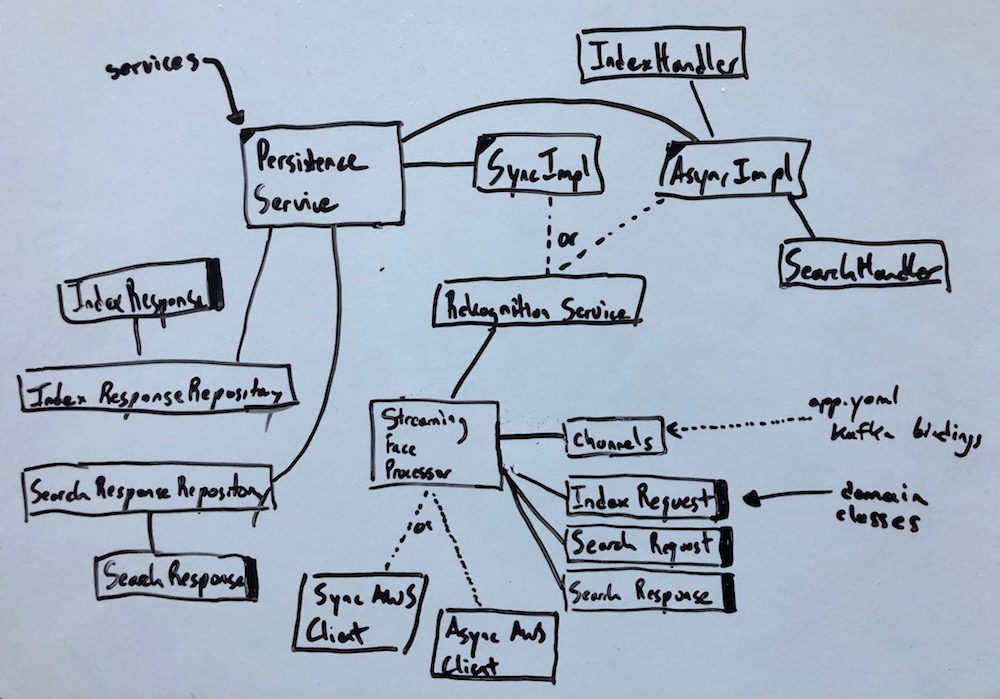 services
IndexHandler
Persistence
Service
SyncImpl
AsyncImpl
or
SearchHandler
IndexResponse
Rekognition Service
Index ResponseRepository
Streaming
Face
Processor
Channels
app.yaml
Kafka bindings
Search Response Repository
Index Request
domain
classes
or
Search Request
Search Response
Search Response
Sync AWS
Client
Async AWS
Client